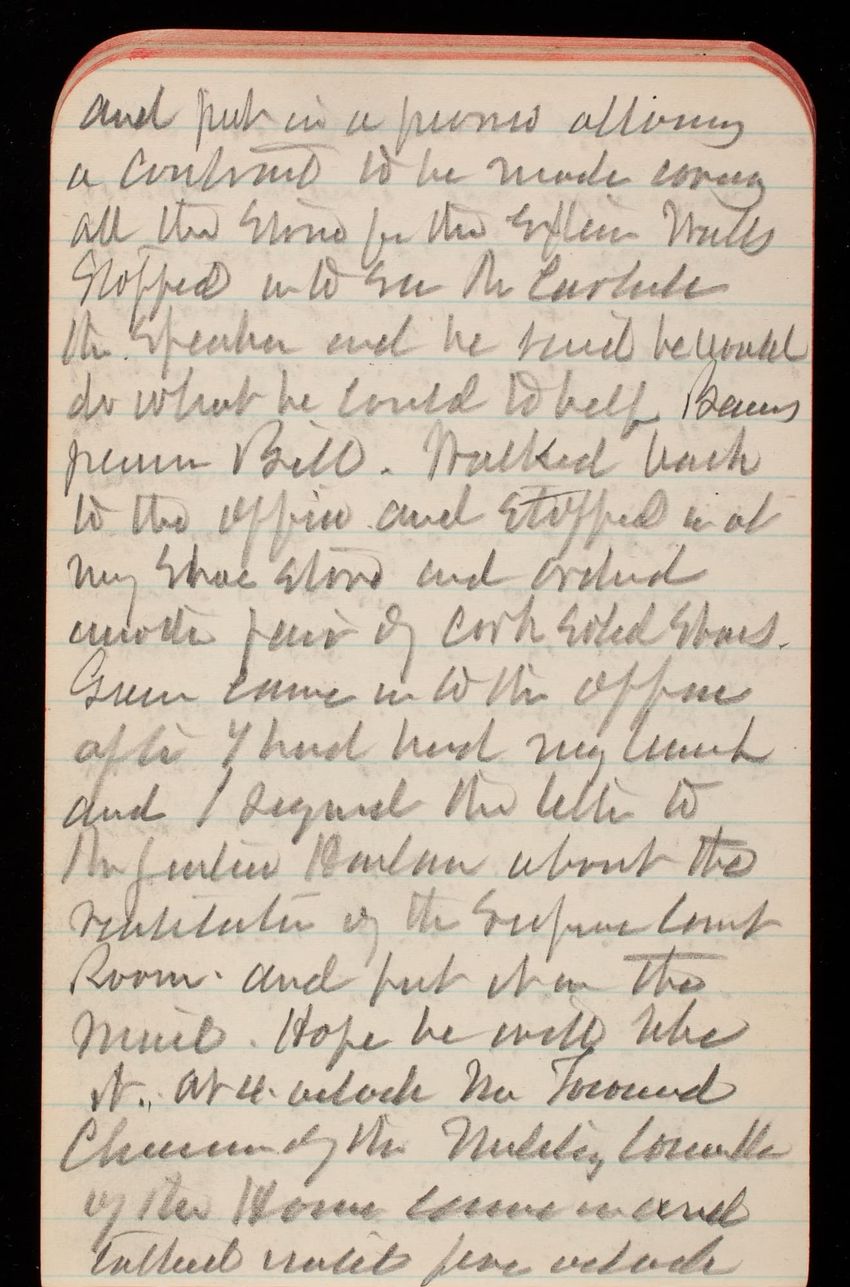 and put in a proviso allowing
a contract to be made coving
all the stone for the Exterior Walls
Stopped in to see Mr Carlisle
the Speaker and he said he would
do what he could to help
Bill. Walked back
to the office and stopped in at
my shoe store and ordered
another pair of cork soled shoes.
Green came in to the office
after I had had my lunch
and I signed the letter to
Mr Justice Harlan about the
ventilation of the Supreme Court
Room. and put it in the
mail. Hope he will like
it. at 4. oclock Mr Townsend
Chairman of the Military Committee
of the House came in and
talked until five oclock